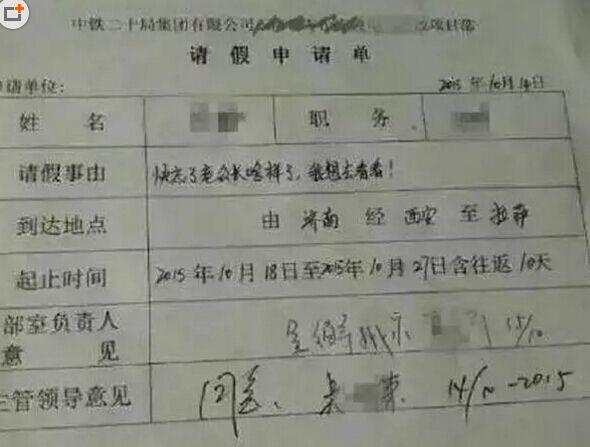 中铁二十局集团有限公司 项目部
请假申请单
申请单位: 2015年10月14日
姓名 职务
请假事由 快忘了老公长啥样了,我想去看看!
到达地点 由 济南 经 西安 至 拉萨
起止时间 2015年10月18日至2015年10月27日含往返10天
部室负责人意见 15/10
主管领导意见 同意、 14/10-2015